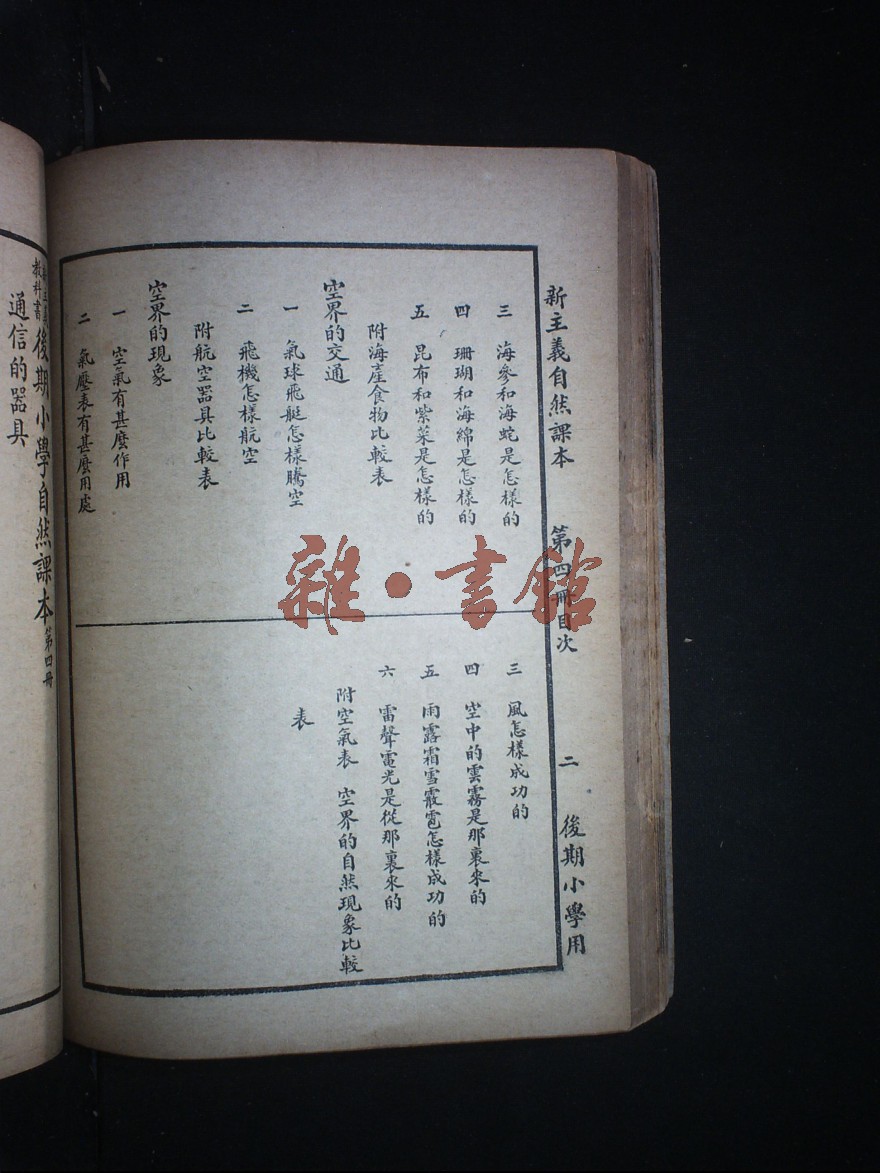 新主義自然課本 第四冊目次 二 後期小學用
三 海參和海蛇是怎樣的
四 珊瑚和海綿是怎樣的
五 昆布和紫菜是怎樣的
附海產食物比較表
空界的交通
一 氣球飛艇怎樣騰空
二 飛機怎樣航空
附航空器具比較表
空界的現象
一 空氣有甚麼作用
二 氣壓表有甚麼用處
三 風怎樣成功的
四 空中的雲霧是那裏來的
五 雨露霜雪霰雹怎樣成功的
六 雷聲電光是從那裏來的
附空氣表 空界的自然現象比較
表
新主義
教科書 後期小學自然課本 第四冊
通信的器具
雜·書館